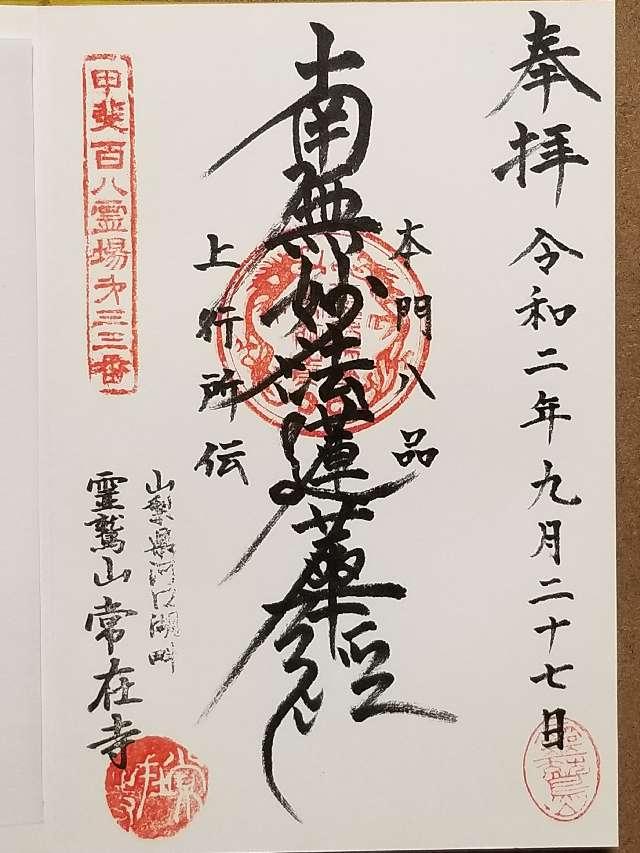 奉拝 令和二年九月二十七日
本門八品
南無妙法蓮華経
上行所伝
甲斐百八霊場第三三番
山梨県河口湖町
霊鷲山 常在寺